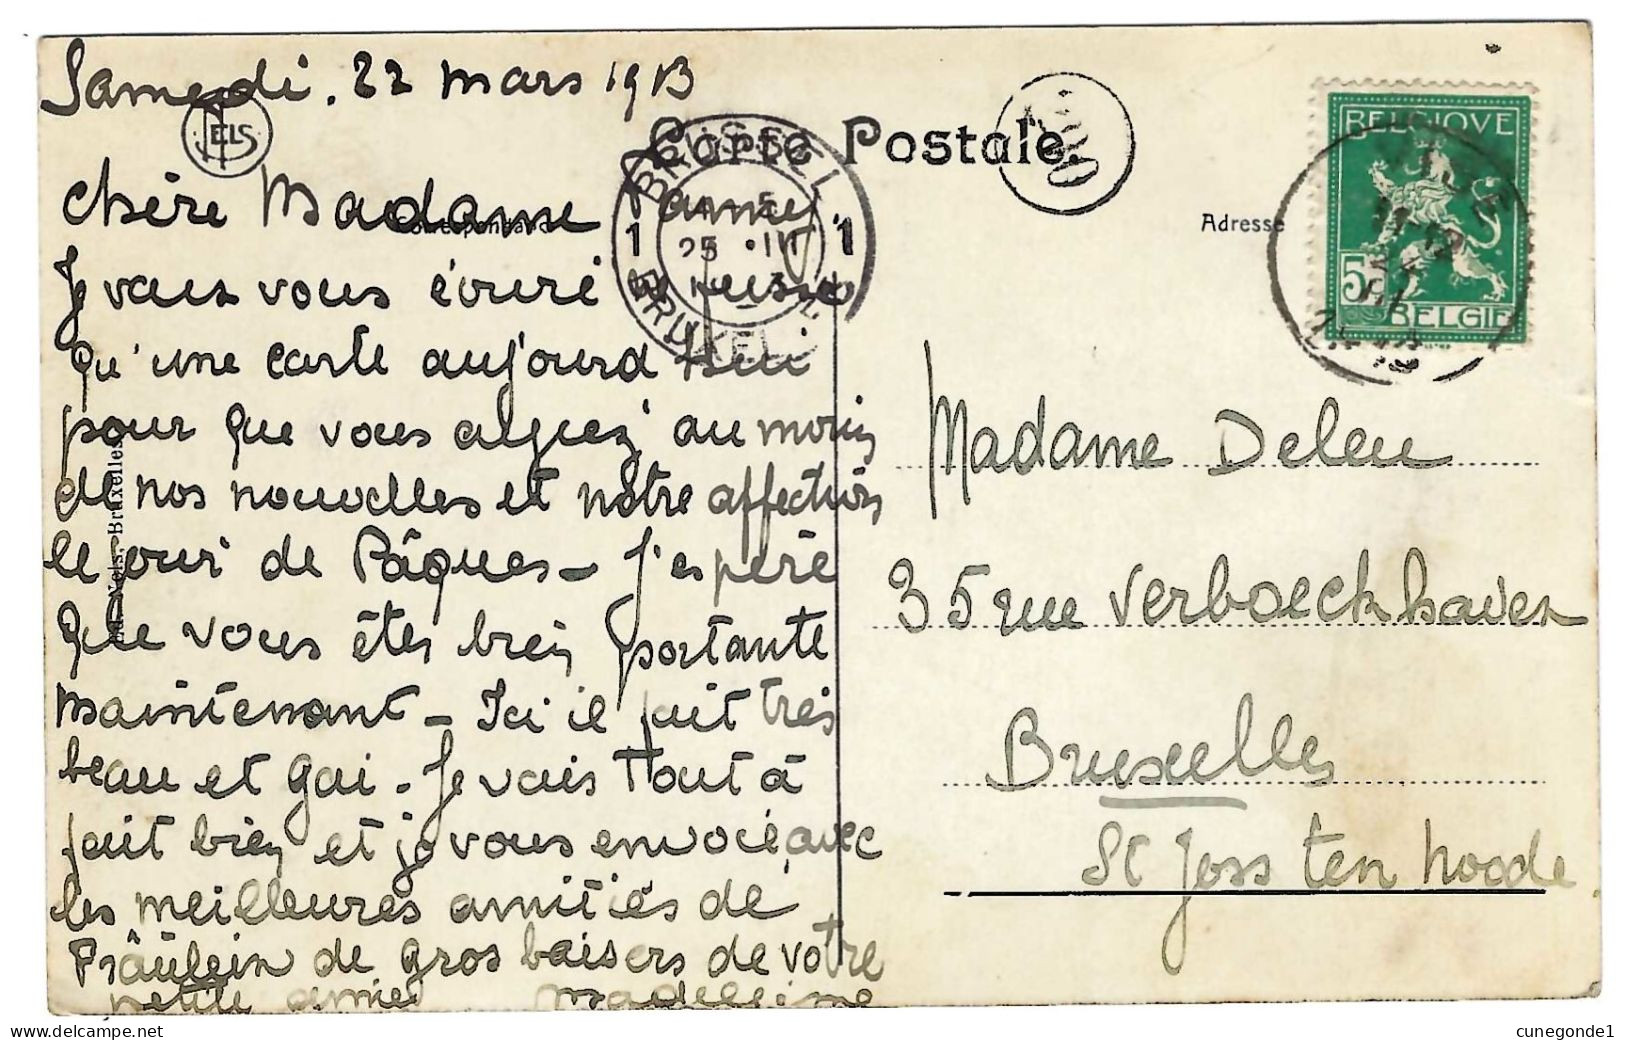 Samedi. 22 mars 1913
NELS
Carte Postale.
BRUSSEL
1 25 III 1
BRUXELLES
BELGIQUE
5
BELGIE
chère Madame Fanny,
Correspondance
Adresse
Je vais vous écrire
qu'une carte aujourd'hui
pour que vous ayiez au moins
de nos nouvelles et notre affection
le jour de Pâques – J'espère
que vous êtes bien portante
maintenant – Ici il fait très
beau et gai – Je vais tout à
fait bien et je vous envoie avec
les meilleures amitiés de
Fräulein de gros baisers de votre
petite amie Madeleine
Nels, Bruxelles.
Madame Deleu
35 rue Verboeckhaven
Bruxelles
St Joss ten Noode.
cunegonde1